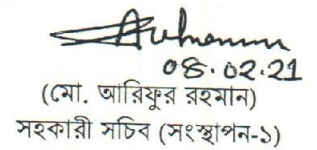 08.02.21
(মো. আরিফুর রহমান)
সহকারী সচিব (সংস্থাপন-১)